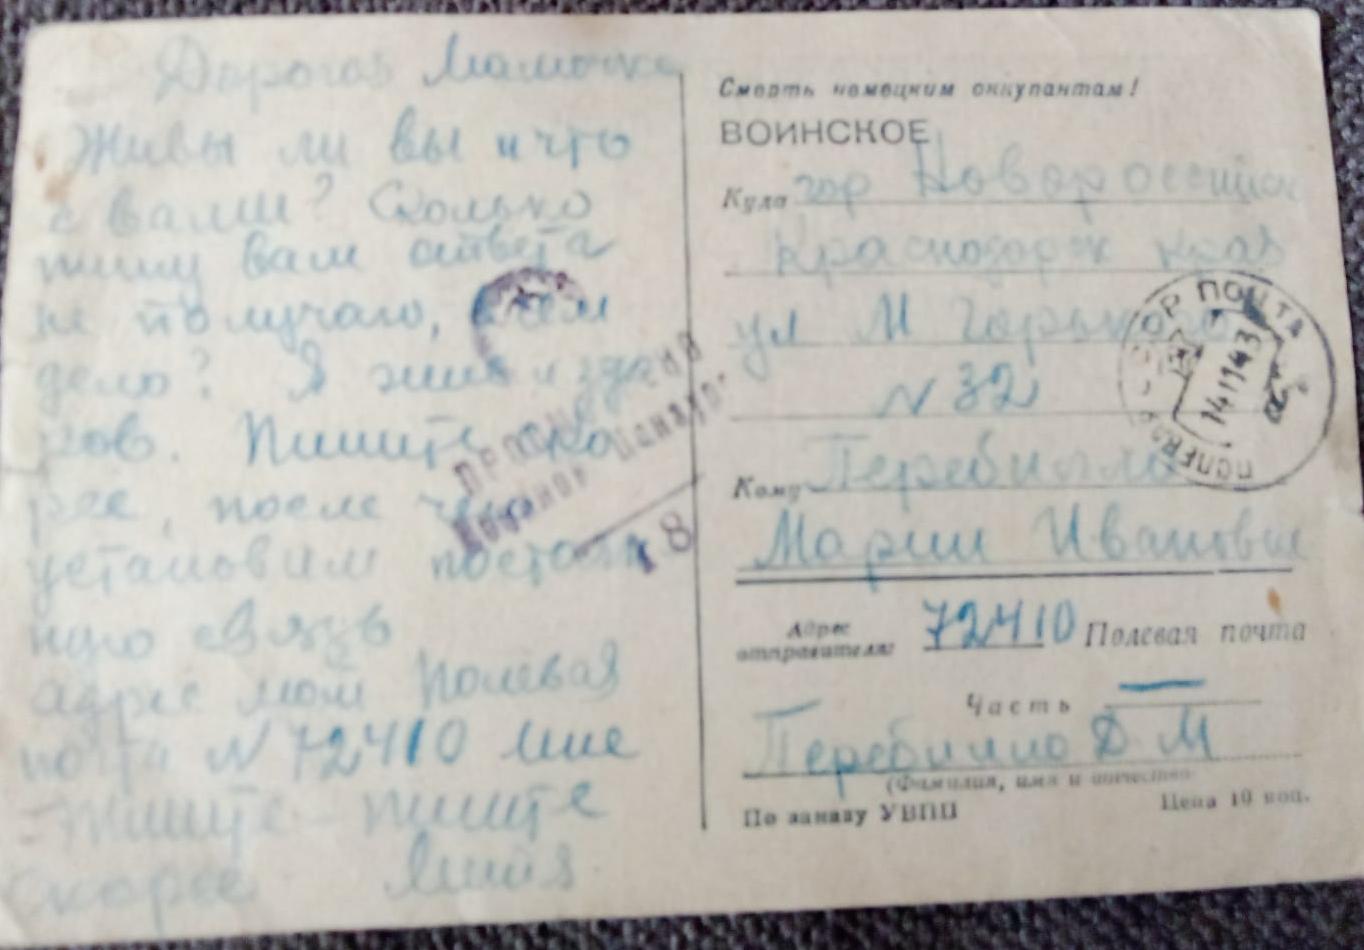 Дорогая Мамочка
Живы ли вы и что
с вами? Сколько
пишу вам ответа
не получаю, в чем
дело? Я жив и здо
ров. Пишите ско
рее, после чего
установим постоян
ную связь
адрес мой Полевая
почта N 72410 Мне
Пишите - пишите
скорее
Смерть немецким оккупантам!
ВОИНСКОЕ
Куда гор Новороссийск
Краснодарск края
ул М Горького
N 32
Кому
Марии Ивановне
Адрес отправителя: 72410 Полевая почта
Часть —
Д М
(Фамилия, имя и отчество)
По заказу УВПП
Цена 10 коп.
ПОЧТА
14 11 43
ПОЛЕВАЯ
Военной Цензурой